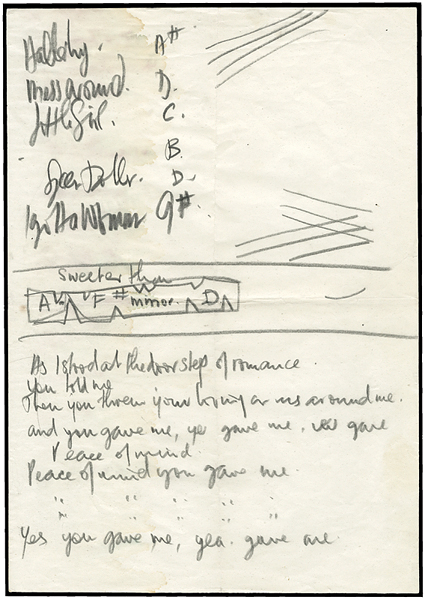 Halleluj. A#
Mess around. D.
Little Girl. C.
B.
Dollar. D.
I got a Woman G#
Sweeter than
A F# minor. D
As I stood at the doorstep of romance.
you told me
Then you threw your loving arms around me.
and you gave me, yes gave me, yes gave
Peace of mind.
Peace of mind you gave me.
" " " " "
" " " " "
Yes you gave me, yea. gave me.